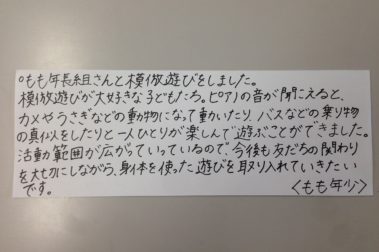 ○もも年長組さんと模倣遊びをしました。
模倣遊びが大好きな子どもたち。ピアノの音が聞こえると、
カメやうさぎなどの動物になって動いたり、バスなどの乗り物
の真似をしたりと一人ひとりが楽しんで遊ぶことができました。
活動範囲が広がっていっているので、今後も友だちの関わり
を大切にしながら、身体を使った遊びを取り入れていきたい
です。
＜もも年少＞